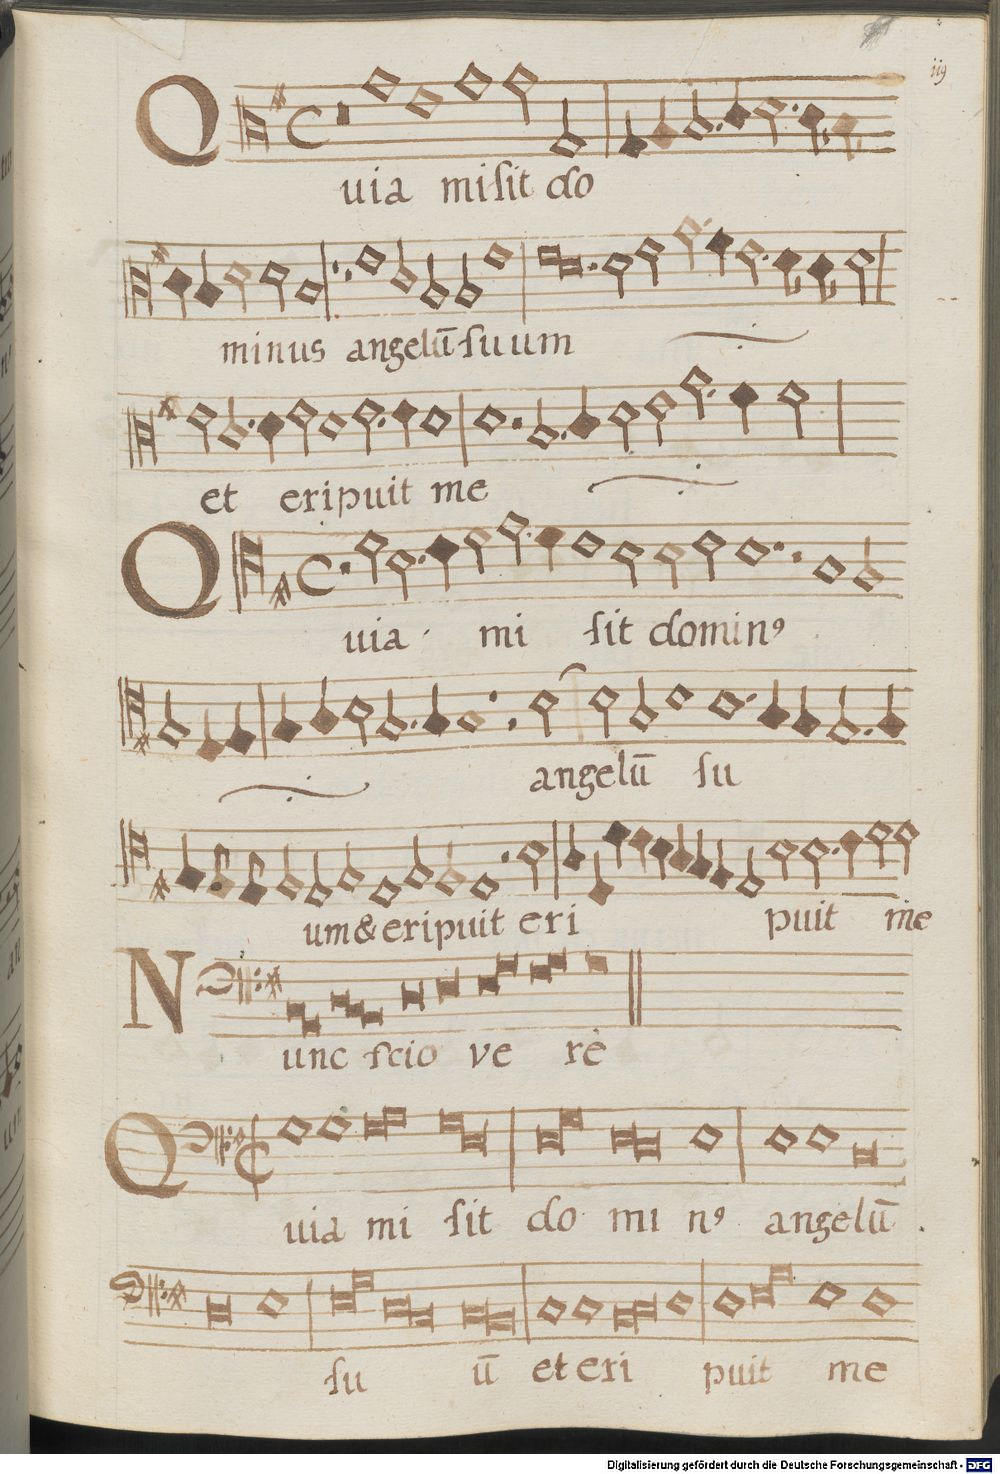 119
Quia misit do
minus angelū suum
et eripuit me
Quia mi sit dominꝰ
angelū su
um & eripuit eri puit me
Nunc scio ve rè
Quia mi sit do mi nꝰ angelū
su ū et eri puit me
Digitalisierung gefördert durch die Deutsche Forschungsgemeinschaft - DFG